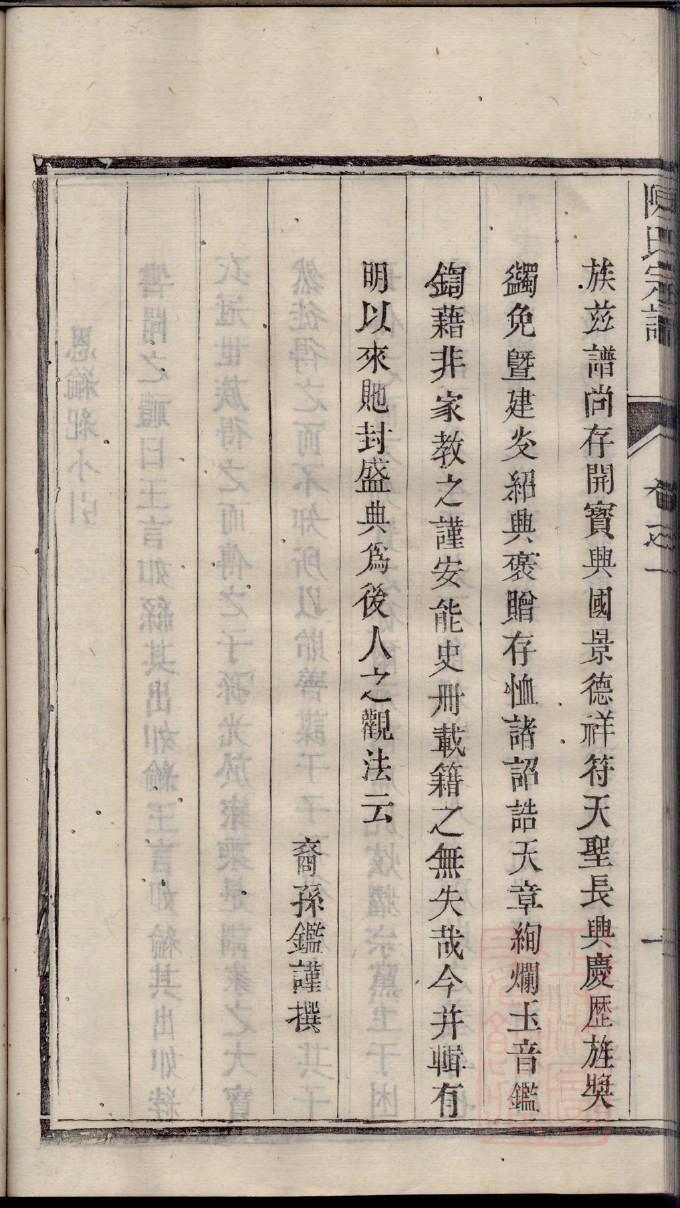 陳氏宗譜
卷之一
族兹譜尚存開寶興國景德祥符天聖長興慶歷旌獎
蠲免曁建炎紹興褒贈存恤諸詔誥天章絢爛玉音鑑
鍧藉非家教之謹安能史冊載籍之無失哉今并輯有
明以來貤封盛典爲後人之觀法云
裔孫鑑謹撰